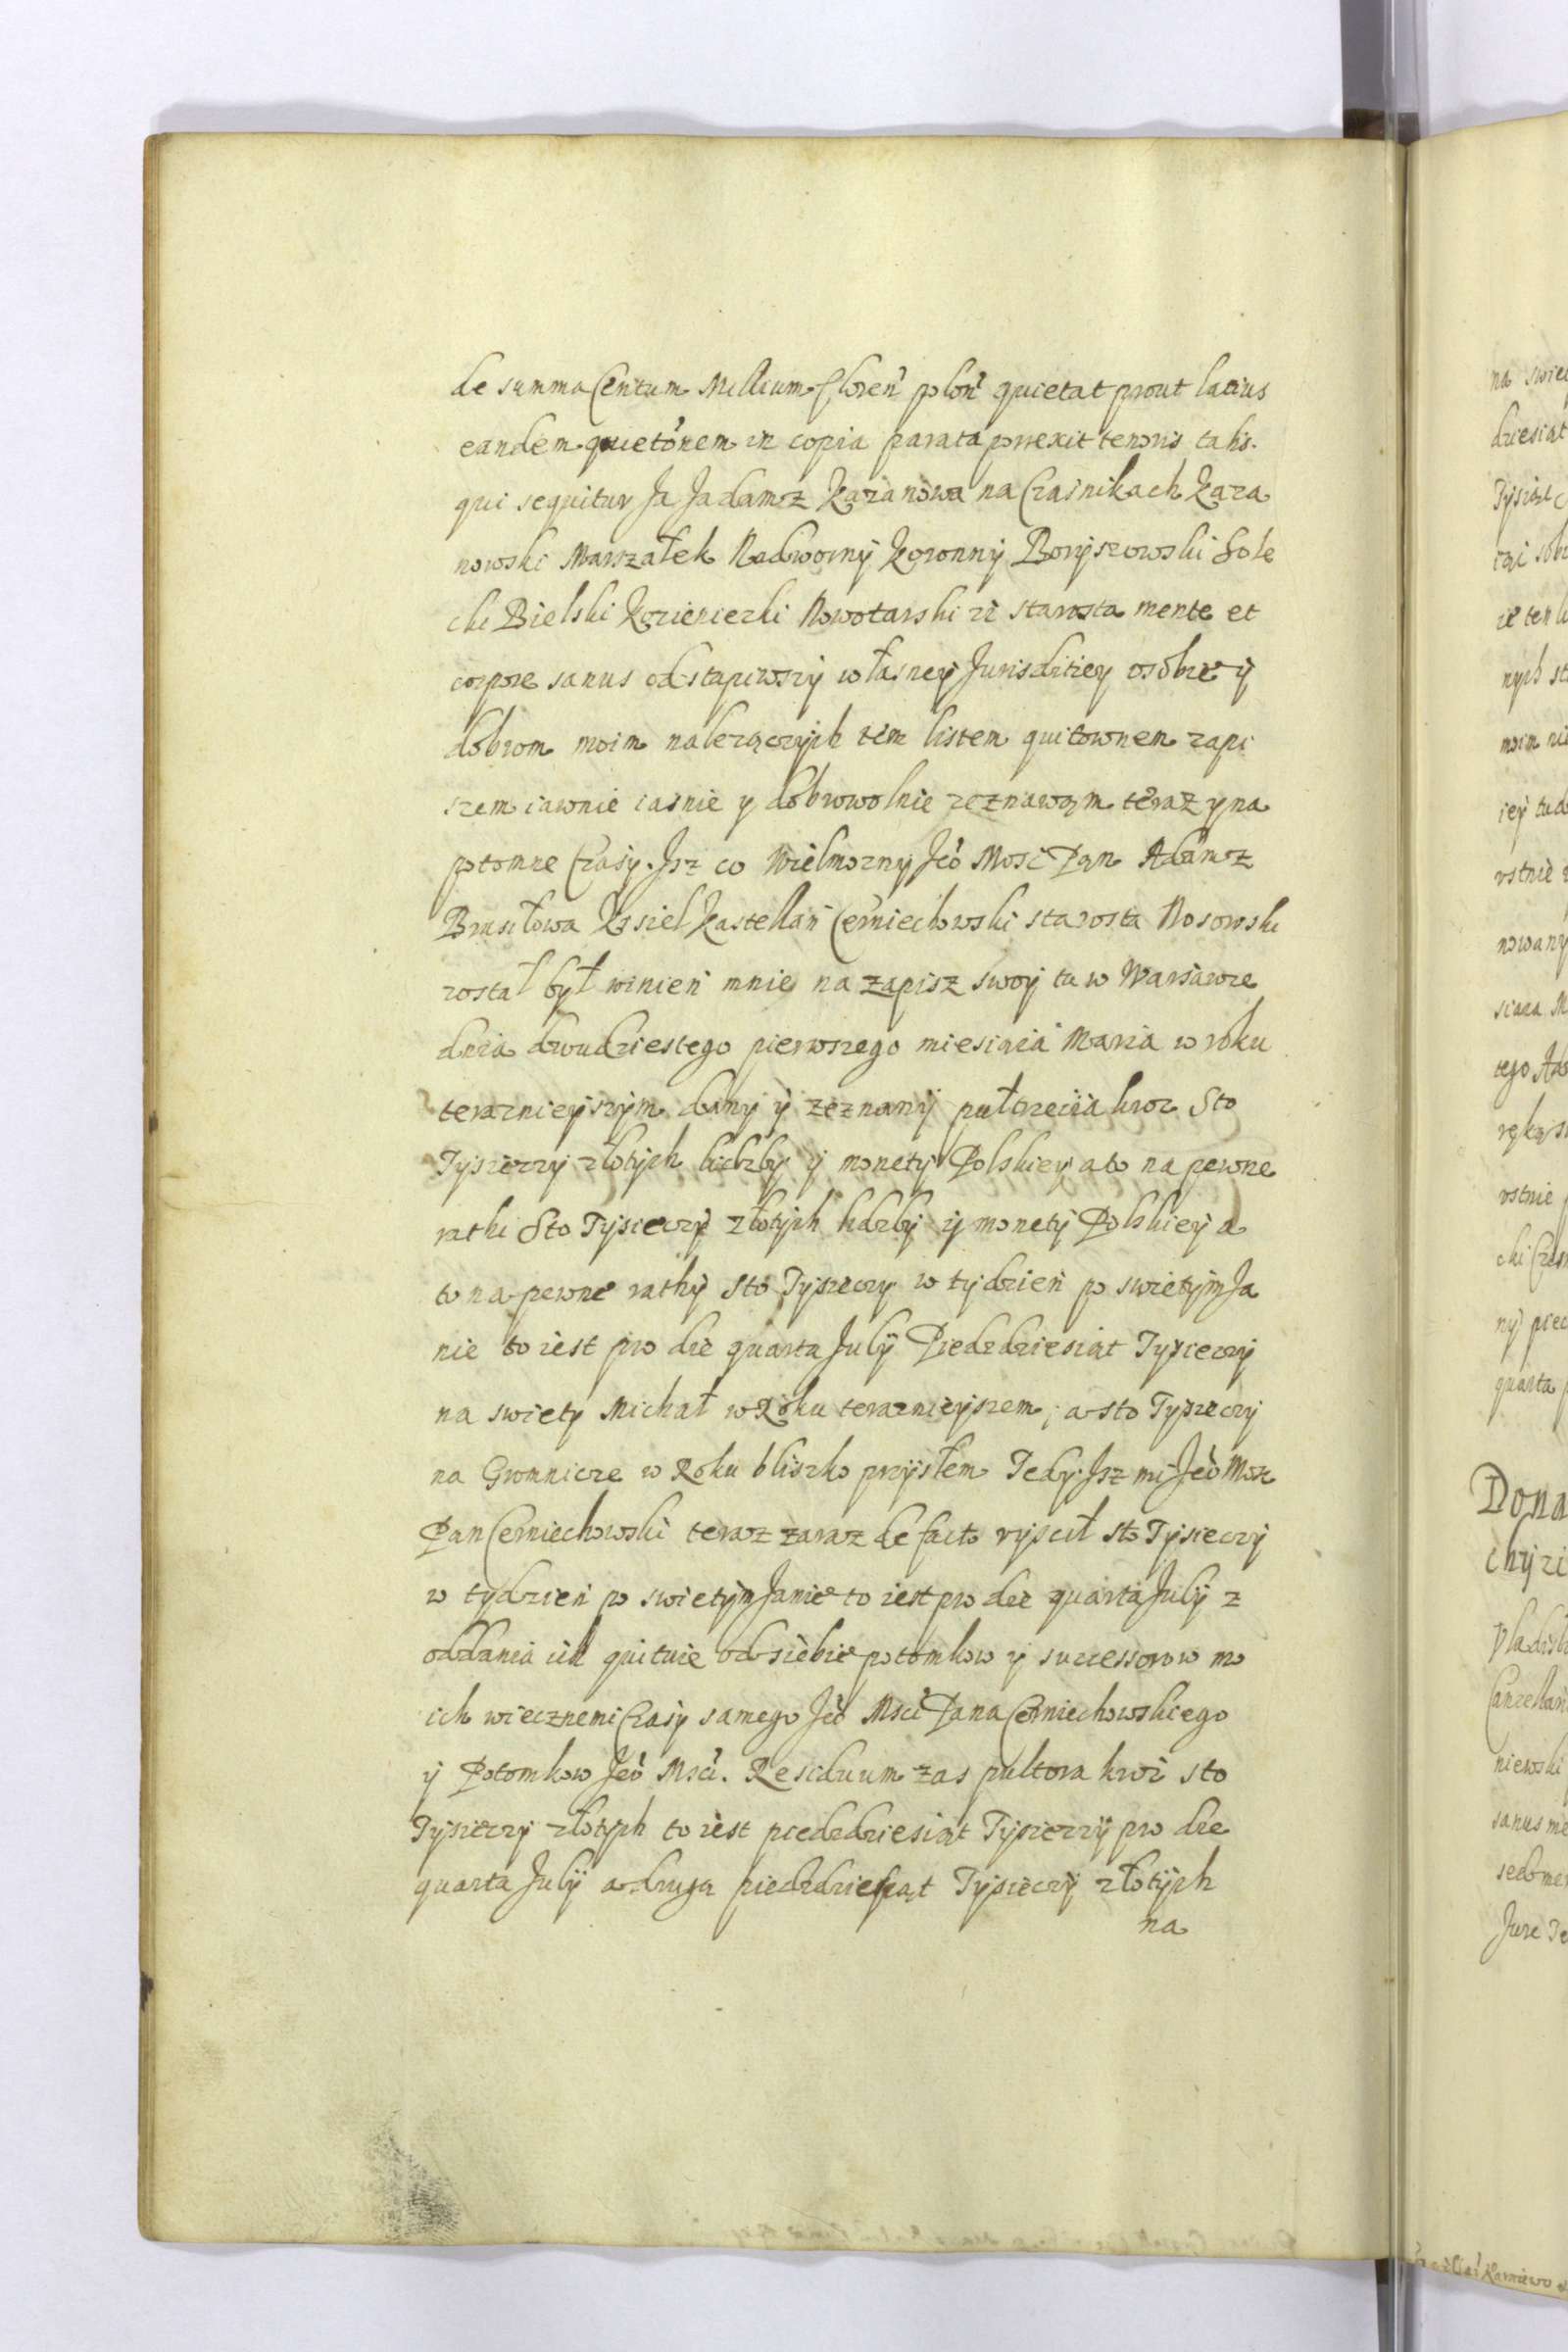 de summa Centum Millium floreń polon̄ quietat prout latius
eandem quietōnem in copia parata porrexit tenoris talis.
qui sequitur Ja Jadam z Kazanowa na Czasnikach Kaza
nowski Marszałek Nadworny Koronny Boryszowski Sole
cki Bielski Kozieniczki Nowotarski zc starosta mente et
corpore sanus odstapiwszy własney Jurisditiey osobie y
dobrom moim nalezączych tem listem quitownem zapi
szem iawnie iasnie y dobrowolnie zeznawam teraz y na
potomne Czasy. Jsz co Wielmozny Jeo Mosc Pan Adam z
Brusiłowa Kisiel Kastellan Cerniechowski starosta Nosowski
został był winien mnie na zapisz swoy tu w Warsawie
dnia dwudziestego pierwszego miesiaca Marca w roku
teraznieyszym dany y zeznany pułtrzecia kroc Sto
Tysieczy złotych lidzby y monety Polskiey ato na pewne
ratki Sto Tysieczy złotych lidzby y monety Polskiey a
to na pewne rathy sto Tysieczy w tydzien po swietym Ja
nie to iest pro die quarta July Piedzdziesiat Tysieczy
na swiety Michał w Roku teraznieyszem, a sto Tysieczy
na Gromnicze w Roku bliszko przysłem Tedy Jsz mi Jeo Mosc
Pan Cerniechowski teraz zaraz de facto ryscił sto Tysieczy
w tydzien po swietym Janie to iest pro die quarta July z
oddania ich quituie od siebie potomkow y successorow mo
ich wiecznemi Czasy samego Jeo Msci Pana Cerniechowskiego
y Potomkow Jeo Msci. Residuum zas pultora kroc sto
Tysieczy złotych to iest piedzdziesiat Tysieczy pro die
quarta July a druga piedzdziesiąt Tysieczy złotych
na
na swie
dziesiat
Tysiec
nych
nowany
tego Ad
rstnie
quarta
Dona
chyzi
Vladisl
Cancellari
niewski
sanus me
sed me
Jure Te